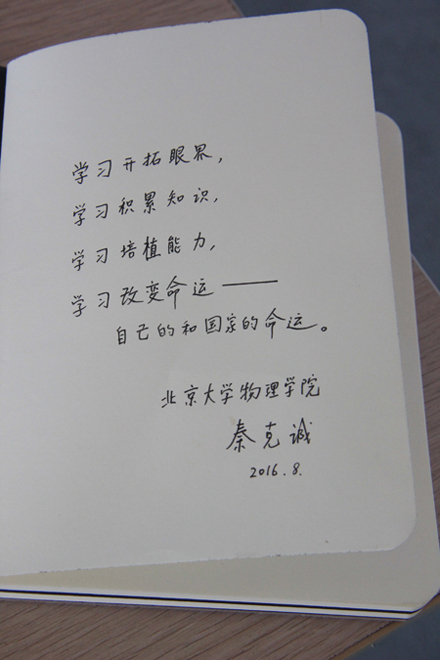 学习开拓眼界,
学习积累知识,
学习培植能力,
学习改变命运——
自己的和国家的命运。
北京大学物理学院
秦克诚
2016.8.